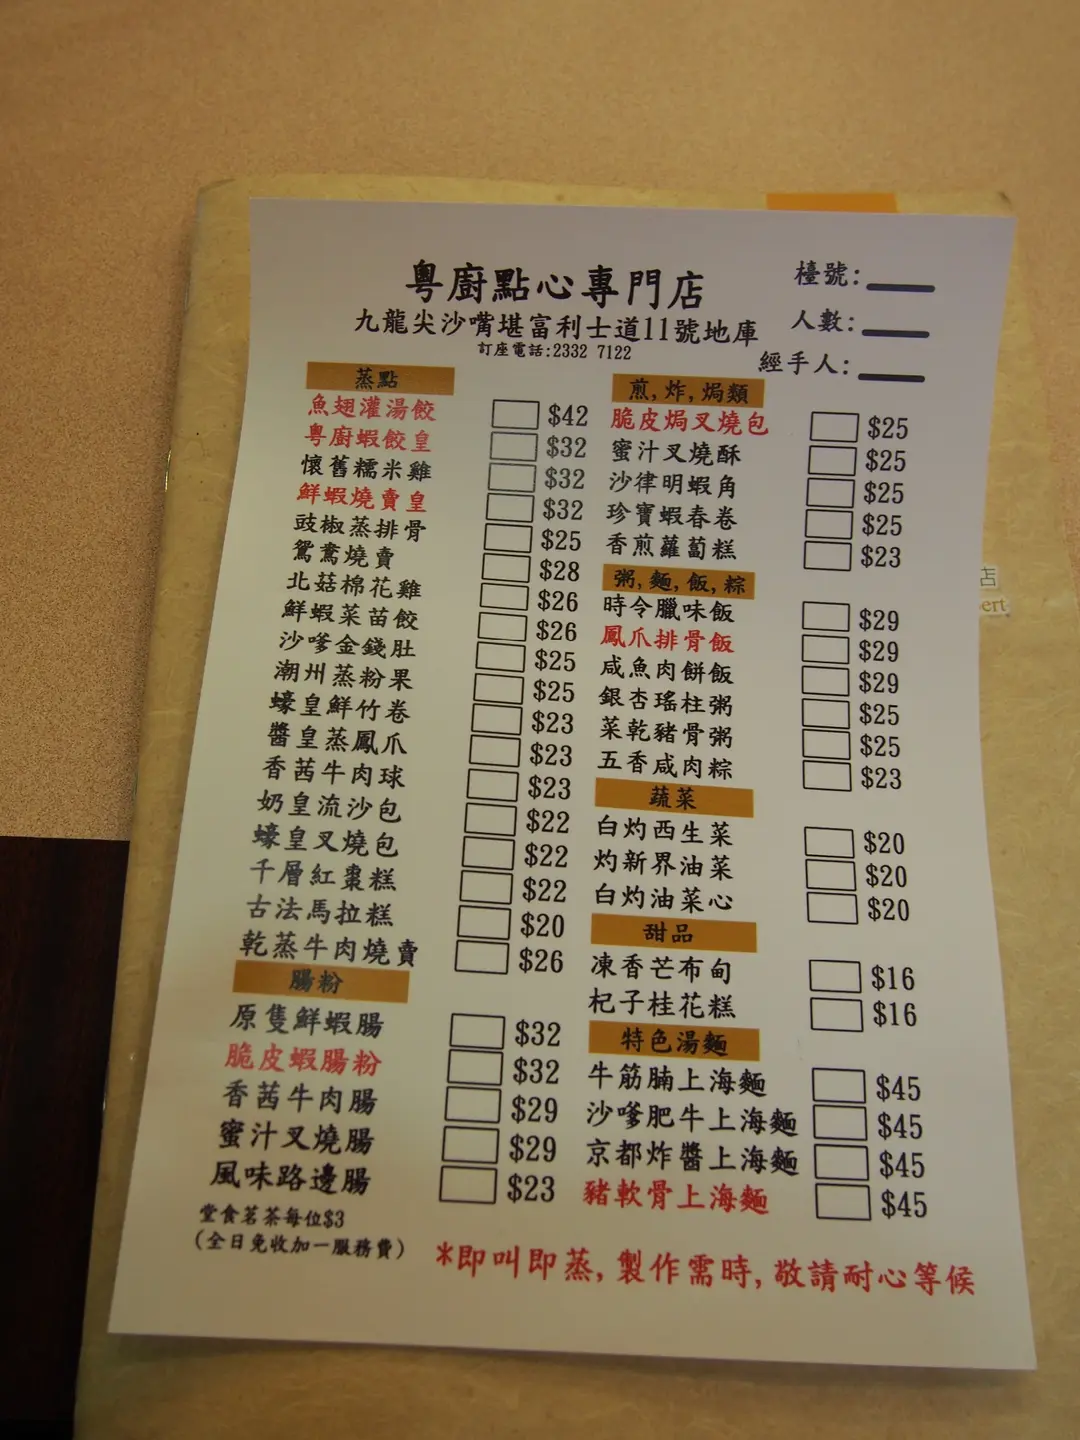 粵廚點心專門店
九龍尖沙嘴堪富利士道11號地庫
訂座電話:2332 7122
檯號:
人數:
經手人:
蒸點
魚翅灌湯餃 $42
粵廚蝦餃皇 $32
懷舊糯米雞 $32
鮮蝦燒賣皇 $32
豉椒蒸排骨 $25
鴛鴦燒賣 $28
北菇棉花雞 $26
鮮蝦菜苗餃 $26
沙嗲金錢肚 $25
潮州蒸粉果 $25
蠔皇鮮竹卷 $23
醬皇蒸鳳爪 $23
香茜牛肉球 $23
奶皇流沙包 $22
蠔皇叉燒包 $22
千層紅棗糕 $22
古法馬拉糕 $20
乾蒸牛肉燒賣 $26
腸粉
原隻鮮蝦腸 $32
脆皮蝦腸粉 $32
香茜牛肉腸 $29
蜜汁叉燒腸 $29
風味路邊腸 $23
堂食茗茶每位$3
(全日免收加一服務費)
煎,炸,焗類
脆皮焗叉燒包 $25
蜜汁叉燒酥 $25
沙律明蝦角 $25
珍寶蝦春卷 $25
香煎蘿蔔糕 $23
粥,麵,飯,粽
時令臘味飯 $29
鳳爪排骨飯 $29
咸魚肉餅飯 $29
銀杏瑤柱粥 $25
菜乾豬骨粥 $25
五香咸肉粽 $23
蔬菜
白灼西生菜 $20
灼新界油菜 $20
白灼油菜心 $20
甜品
凍香芒布甸 $16
杞子桂花糕 $16
特色湯麵
牛筋腩上海麵 $45
沙嗲肥牛上海麵 $45
京都炸醬上海麵 $45
豬軟骨上海麵 $45
*即叫即蒸,製作需時,敬請耐心等候
店
ert